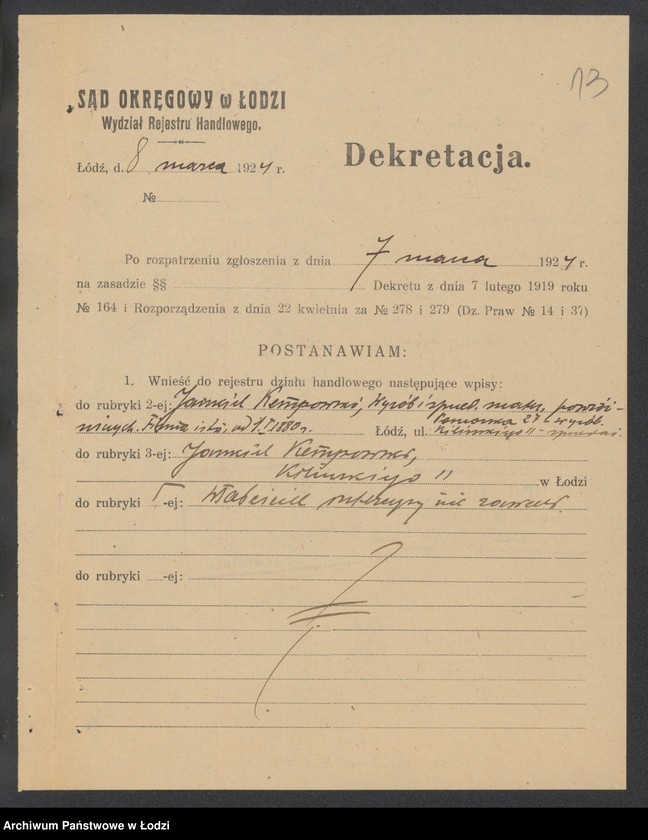 13
SĄD OKRĘGOWY w ŁODZI
Wydział Rejestru Handlowego.
Dekretacja.
Łódź, d. 8 marca 1924 r.
№
Po rozpatrzeniu zgłoszenia z dnia 7 marca 1924 r.
na zasadzie §§ Dekretu z dnia 7 lutego 1919 roku
№ 164 i Rozporządzenia z dnia 22 kwietnia za № 278 i 279 (Dz. Praw № 14 i 37)
POSTANAWIAM:
1. Wnieść do rejestru działu handlowego następujące wpisy:
do rubryki 2-ej: Kempowski, Wyrób i sprzed.
Firma 1880 r. Łódź, ul. Kilińskiego 11 - sprzedaż.
do rubryki 3-ej: Kempowski,
Kilińskiego 11 w Łodzi
do rubryki -ej: Właściciel intercyzy nie zawarł.
do rubryki -ej:
Archiwum Państwowe w Łodzi